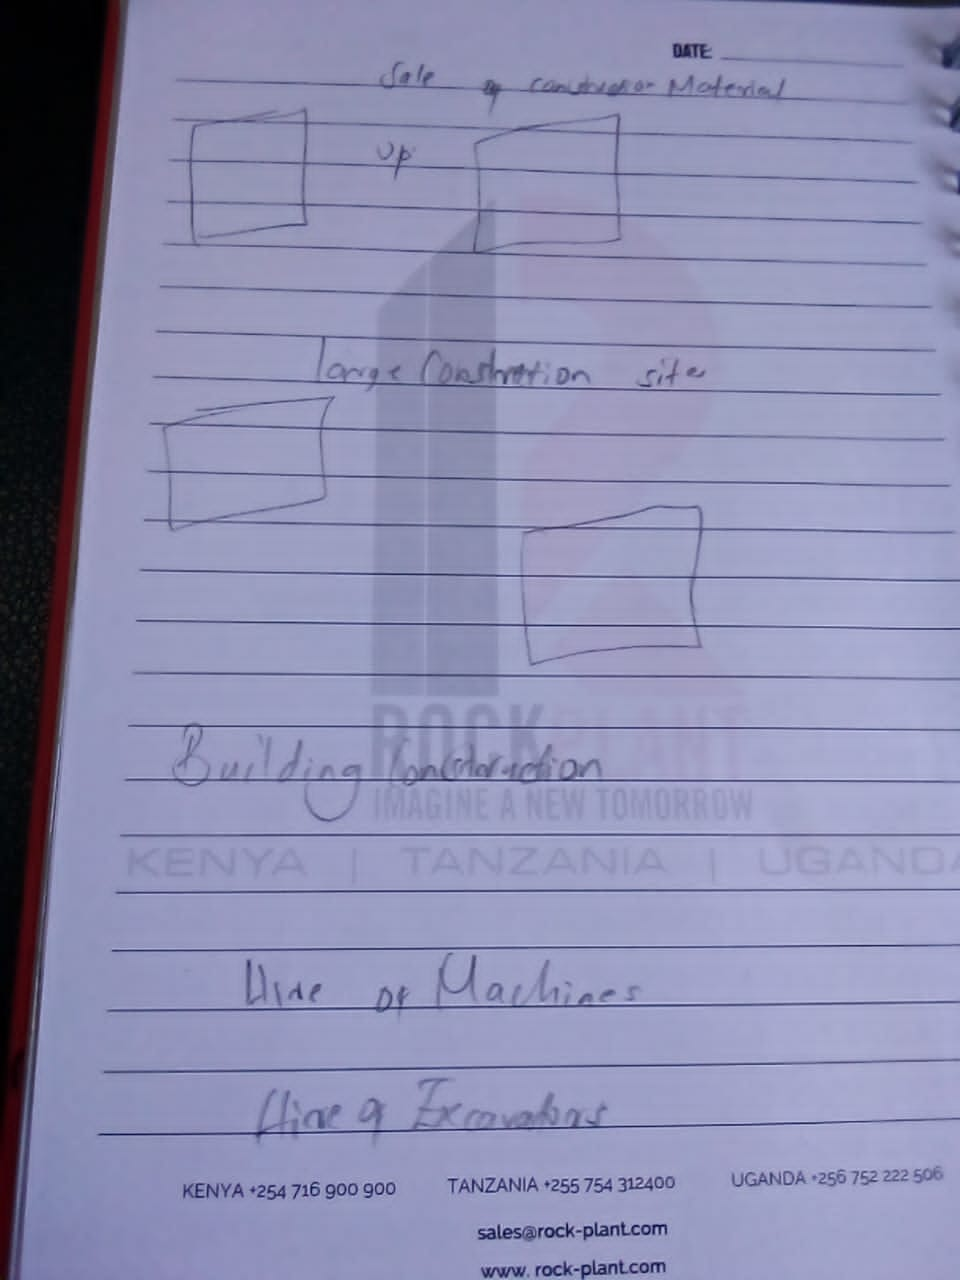 DATE:
Sale of construction Material
up
large Constrction site
ROCKPLANT
Building Construction
IMAGINE A NEW TOMORROW
KENYA | TANZANIA | UGANDA
Hire of Machines
Hire of Excavators
KENYA +254 716 900 900 TANZANIA +255 754 312400 UGANDA +256 752 222 506
sales@rock-plant.com
www. rock-plant.com